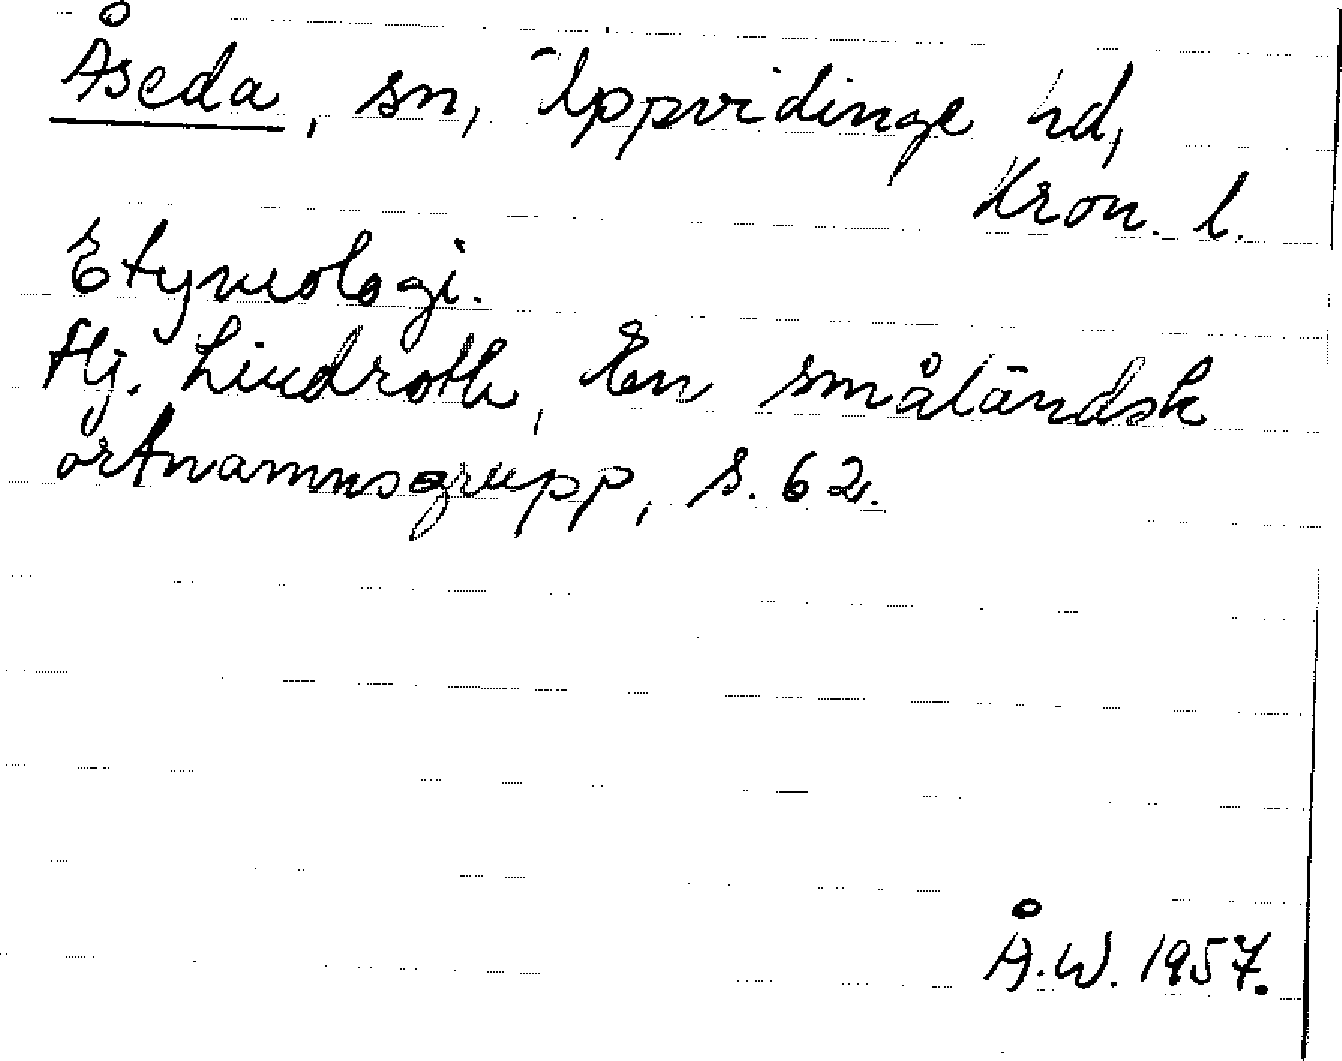 Åseda, sn, Uppvidinge hd,
Kron. l.
Etymologi.
Hj. Lindroth, En småländsk
ortnamnsgrupp, s. 62.
Å.W. 1957.